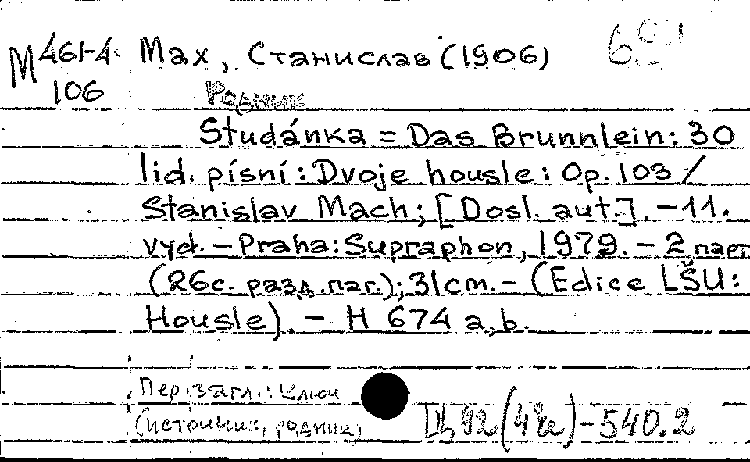 М 461-4 Мах, Станислав (1906)
106 Родник
Studánka = Das Brunnlein: 30
lid. písní: Dvoje housle: Op. 103 /
Stanislav Mach; [Dosl. aut.]. - 11.
vyd. - Praha: Supraphon, 1979. - 2 парт.
(26с. разд. паг.); 31cm. - (Edice LŠU:
Housle). - H 674 a, b.
Пер. загл.: Ключ
(источник, родник)